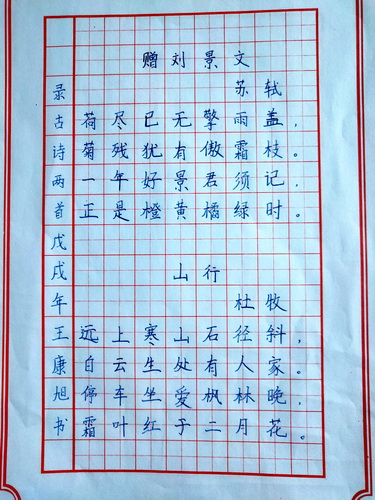 赠刘景文
苏轼
荷尽已无擎雨盖，
菊残犹有傲霜枝。
一年好景君须记，
正是橙黄橘绿时。
山行
杜牧
远上寒山石径斜，
白云生处有人家。
停车坐爱枫林晚，
霜叶红于二月花。
录古诗两首戊戌年王康旭书